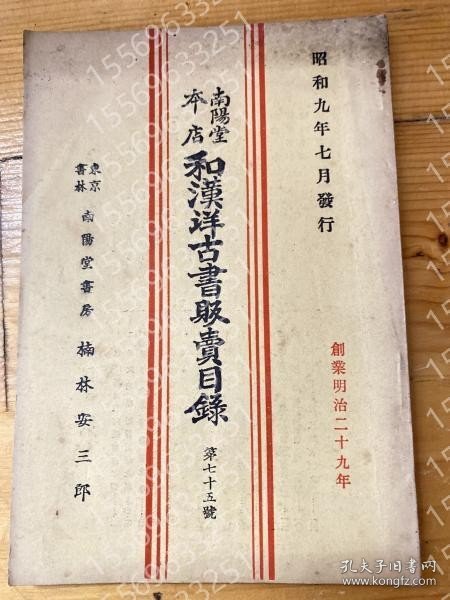 昭和九年七月發行
創業明治二十九年
南陽堂
本店
和漢洋古書販賣目錄
第七十五號
東京
書林
南陽堂書房
楠林安三郎
15569633251
孔夫子旧书网
www.kongfz.com